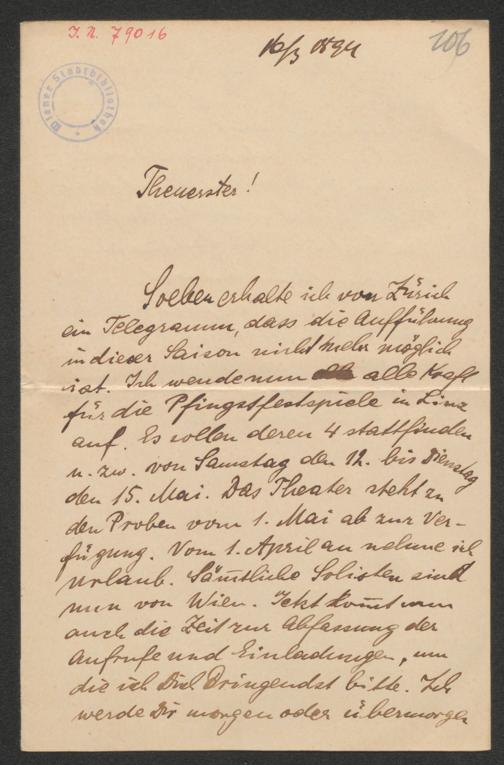 I. N. 79016
16/3 1894
106
Wiener Stadtbibliothek
Theuerster!
Soeben erhalte ich von Zürich
ein Telegramm, dass die Aufführung
in dieser Saison nicht mehr möglich
ist. Ich wende nun alle Kraft
für die Pfingstfestspiele in Linz
auf. Es sollen deren 4 stattfinden
u. zw. von Samstag den 12. bis Dienstag
den 15. Mai. Das Theater steht zu
den Proben vom 1. Mai ab zur Ver-
fügung. Vom 1. April an nehme ich
Urlaub. Sämtliche Solisten sind
nun von Wien. Jetzt kom̅t nun
auch die Zeit zur Abfassung der
Aufrufe und Einladungen, um
die ich Dich Dringendst bitte. Ich
werde Dir morgen oder übermorgen